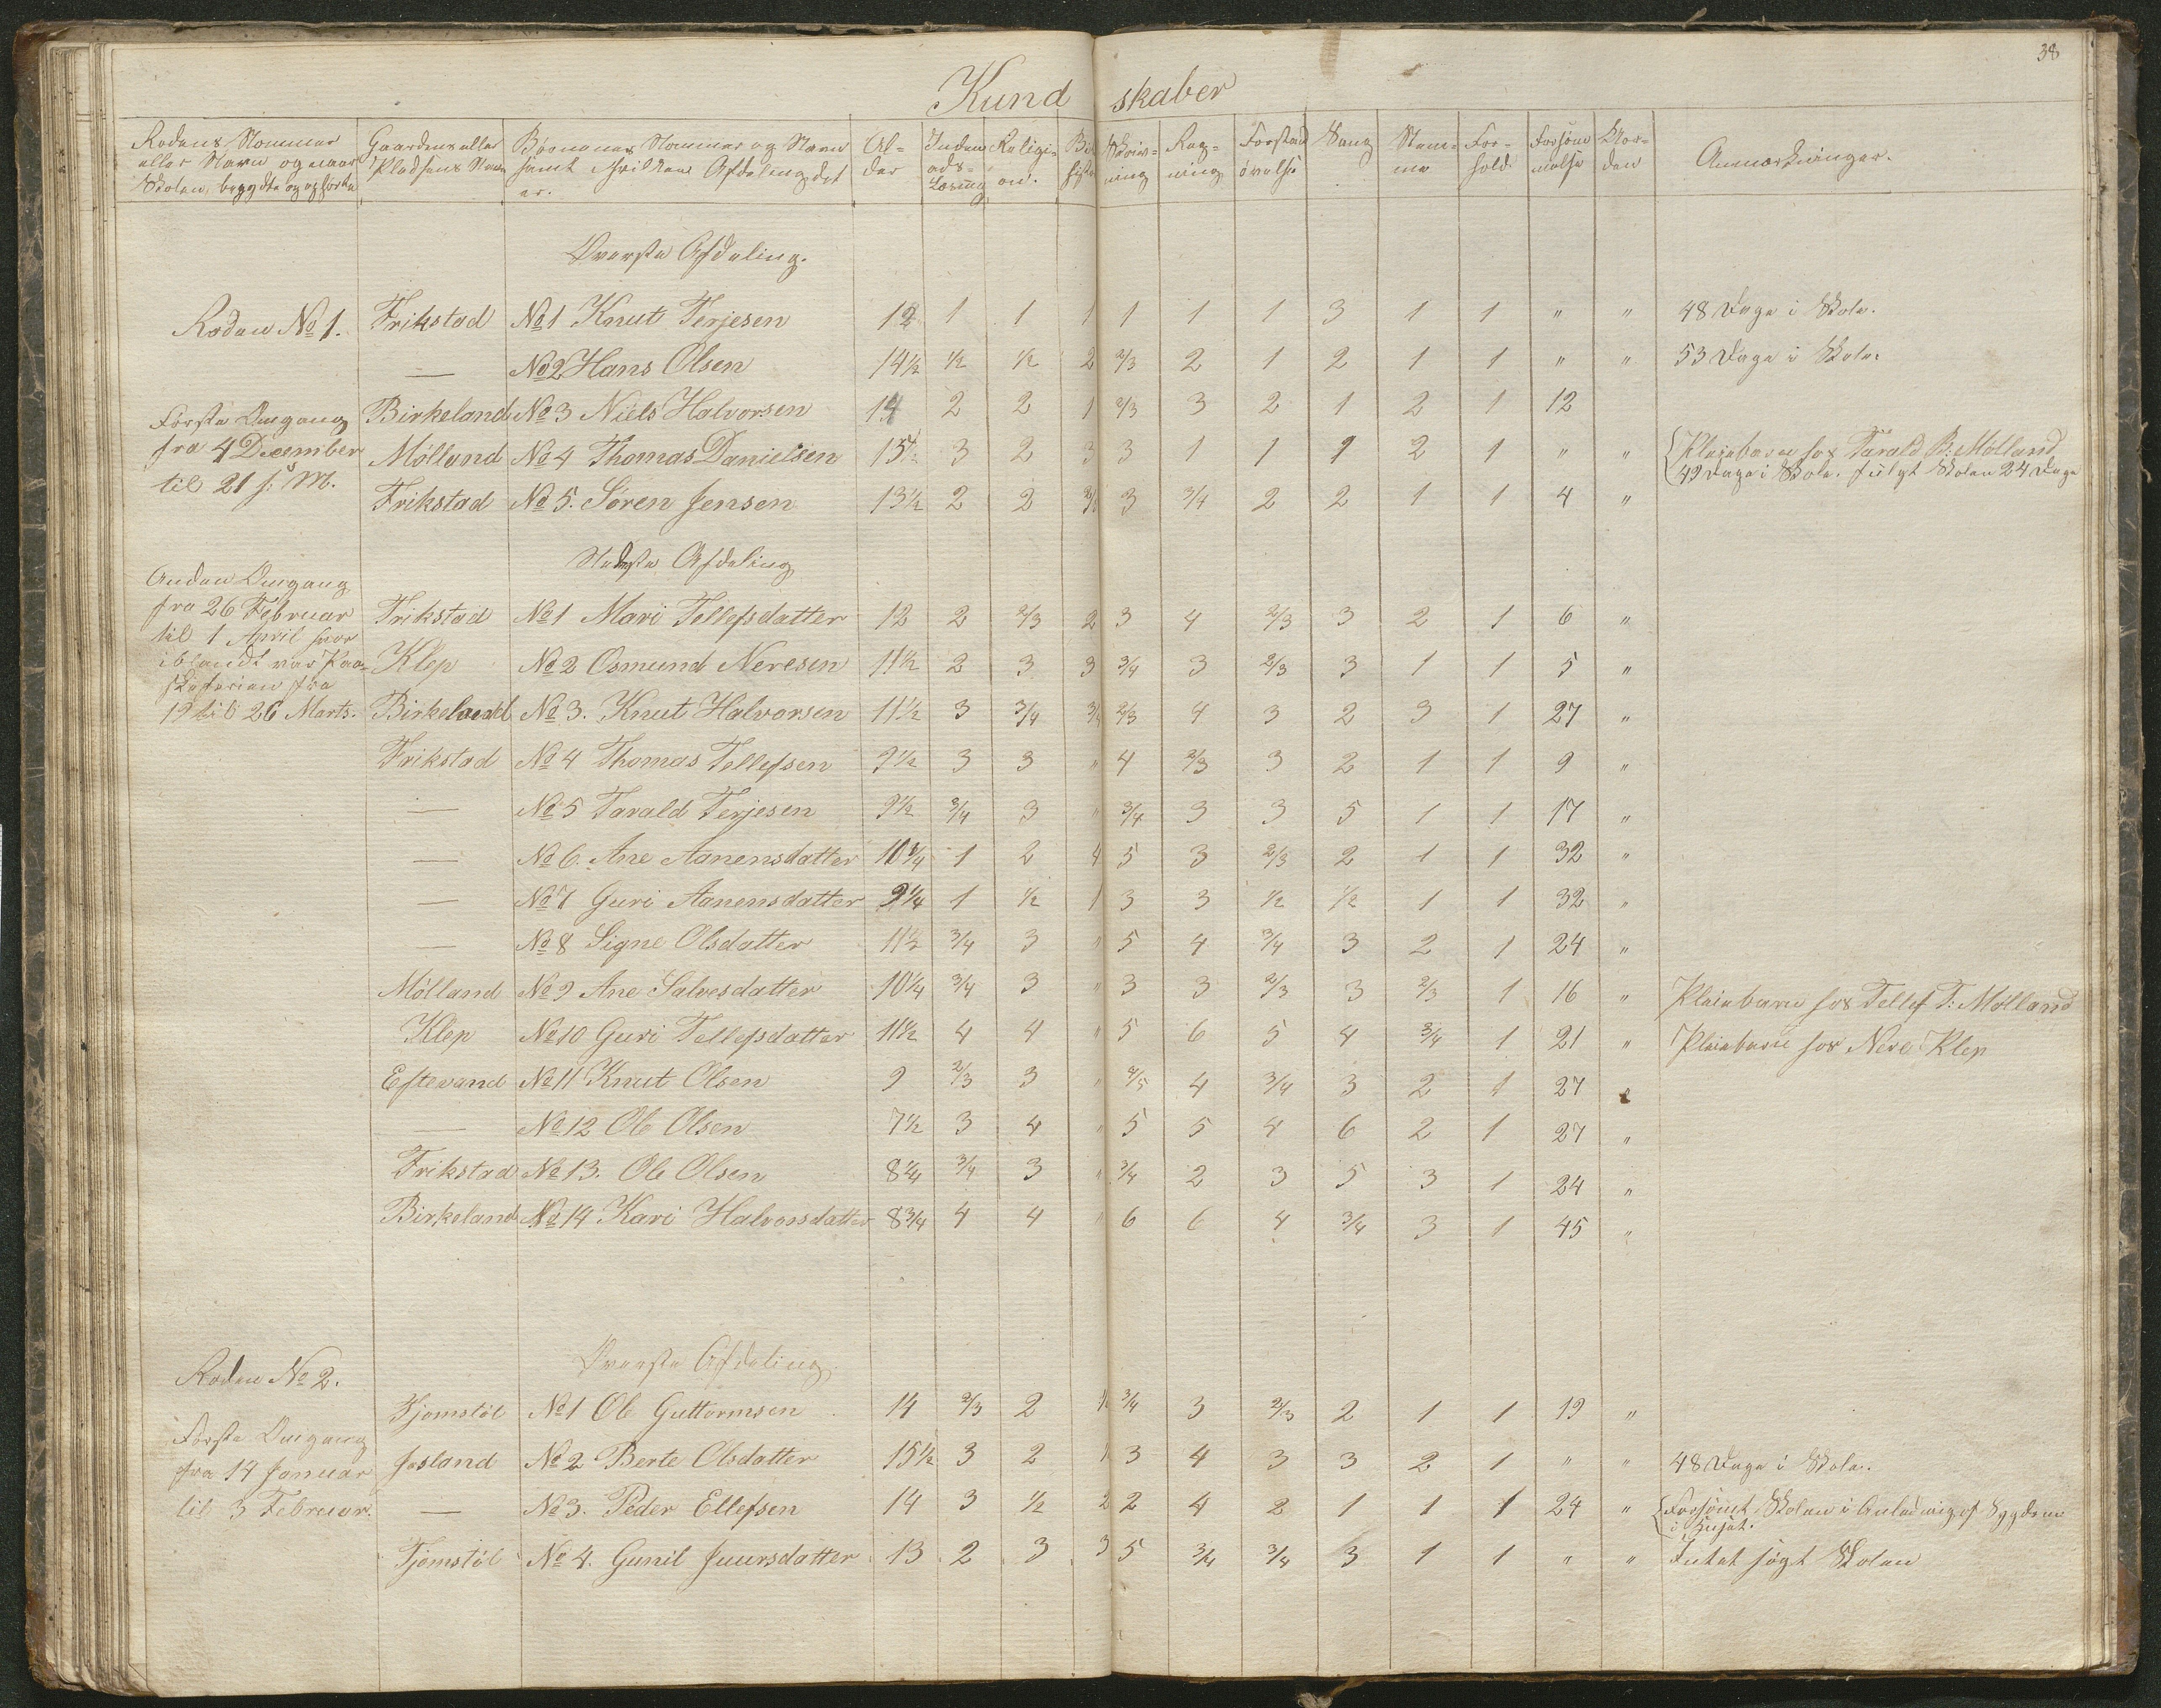 38
Kundskaber
Rodens Nommer eller Navn og naar Skolen begyndte og ophørte | Gaardens eller Pladsens Navn | Børnenes Nommer og Navn samt hvilken Afdeling det er. | Alder | Indenadslæsning | Religion. | Skrivning | Regning | Forstandøvelse | Sang | Stemme | Forhold | Forsømmelse | Anmærkninger.
Øverste Afdeling.
Roden No 1. Frikstad No 1 Knut Terjesen 12 1 1 1 1 1 1 3 1 1 " " 48 Dage i Skole.
— No 2 Hans Olsen 14½ ½ ½ 2 2/3 2 1 2 1 1 " " 53 Dage i Skole.
Første Omgang Birkeland No 3 Niels Halvorsen 2 2 1 2/3 3 2 1 2 1 12
fra 4 December Mølland No 4 Thomas Danielsen 15½ 3 2 3 3 1 1 1 2 1 " " Pleiebarn hos Tarald B: Mølland
49 Dage i Skole. fulgt Skolen 24 Dage
til 21 s: M. Frikstad No 5. Søren Jensen 13½ 2 2 3 3/4 2 2 1 1 4 "
Nederste Afdeling
Anden Omgang
fra 26 Februar Frikstad No 1 Mari Tellefsdatter 12 2 2/3 2 3 4 2/3 3 2 1 6 "
til 1 April hvor
iblandt var Paa- Klep No 2 Osmund Neresen 11½ 2 3 3 3/4 3 2/3 3 1 1 5 "
skeferien fra
19 til 26 Marts. Birkeland No 3. Knut Halvorsen 11½ 3 3/4 2/3 4 3 2 3 1 27 "
Frikstad No 4 Thomas Tellefsen 9½ 3 3 " 4 2/3 3 2 1 1 9 "
— No 5 Tarald Terjesen 9½ 3/4 3 " 3/4 3 3 5 1 1 17 "
— No 6. Ane Aanensdatter 10¾ 1 2 4 5 3 2/3 2 1 1 32 "
— No 7 Guri Aanensdatter 9¼ 1 ½ 1 3 3 ½ ½ 1 1 32 "
— No 8 Signe Olsdatter 11½ 3/4 3 " 5 4 3/4 3 2 1 24 "
Mølland No 9 Ane Salvesdatter 10¼ 3/4 3 " 3 3 2/3 3 2/3 1 16 " Pleiebarn hos Tellef T: Mølland
Klep No 10 Guri Tellefsdatter 11½ 4 4 " 5 6 5 4 3/4 1 21 " Pleiebarn hos Nere Klep
Eftevand No 11 Knut Olsen 9 2/3 3 " 4 3/4 3 2 1 27
— No 12 Ole Olsen 7½ 3 4 " 5 5 4 6 2 1 27 "
Frikstad No 13. Ole Olsen 8¼ 3/4 3 " 3/4 2 3 5 3 1 24 "
Birkeland No 14 Kari Halvorsdatter 8¾ 4 4 " 6 6 4 3/4 3 1 45 "
Øverste Afdeling
Roden No 2.
Tjomstøl No 1 Ole Guttormsen 14 2/3 2 3/4 3 2/3 2 1 1 19 "
Første Omgang
fra 14 Januar Josland No 2 Berte Olsdatter 15½ 3 2 3 4 3 3 2 1 " " 48 Dage i Skole.
til 3 Februar. — No 3. Peder Ellefsen 14 3 ½ 2 2 4 2 1 1 1 24 " Forsømt Skolen i Anledning af Sygdom
i Huset.
Tjomstøl No 4. Gunil Juursdatter 13 2 3 3 5 3/4 3/4 3 1 1 " " Intet søgt Skolen